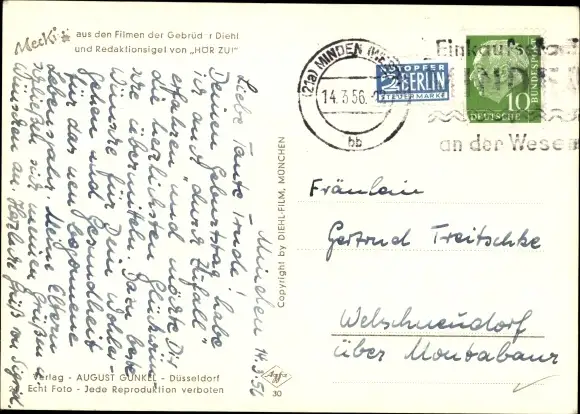 Mecki aus den Filmen der Gebrüder Diehl
und Redaktionsigel von „HÖR ZU!"
München 14.3.56
Liebe Tante Trude!
Deinen Geburtstag habe
ich auch „durch Zufall"
erfahren und möchte Dir
die herzlichsten Glückwün-
sche übermitteln. Dazu beste
Wünsche für Dein Wohler-
gehen und Gesundheit
für das neu begonnene
Lebensjahr. Meine Eltern
schließen sich meinen Grüßen u.
Wünschen an. Herzliche Grüße von
Copyright by DIEHL-FILM, MÜNCHEN
Verlag - AUGUST GUNKEL - Düsseldorf
Echt Foto - Jede Reproduktion verboten
Agfa
30
(21a) MINDEN (WESTF)
14.3.56.
bb
NOTOPFER
2 BERLIN
STEUERMARKE
Einkaufsstadt
MINDEN
an der Weser
10
DEUTSCHE
BUNDESPOST
Fräulein
Gertrud Treitschke
Welschneudorf
über Montabaur